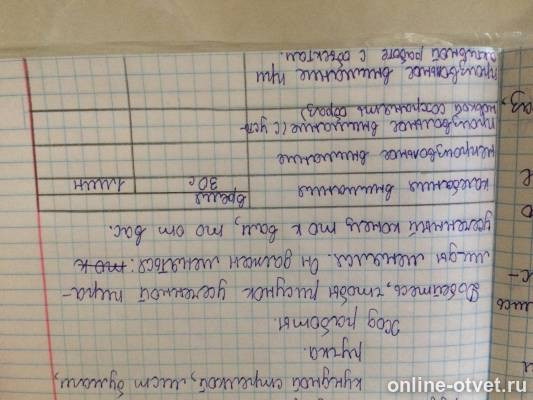 кундной стрелкой, лист бумаги,
ручка.
Ход работы.
Добейтесь, чтобы рисунок усеченной пира-
ми-ды менялся. Он должен меняться: то к
усеченный конец то к вам, то от вас.
колебания внимания
время
30 с
1 мин
непроизвольное внимание
произвольное внимание (с уст-
новкой сохранять образ)
произвольное внимание при
активной работе с объектом.
online-otvet.ru